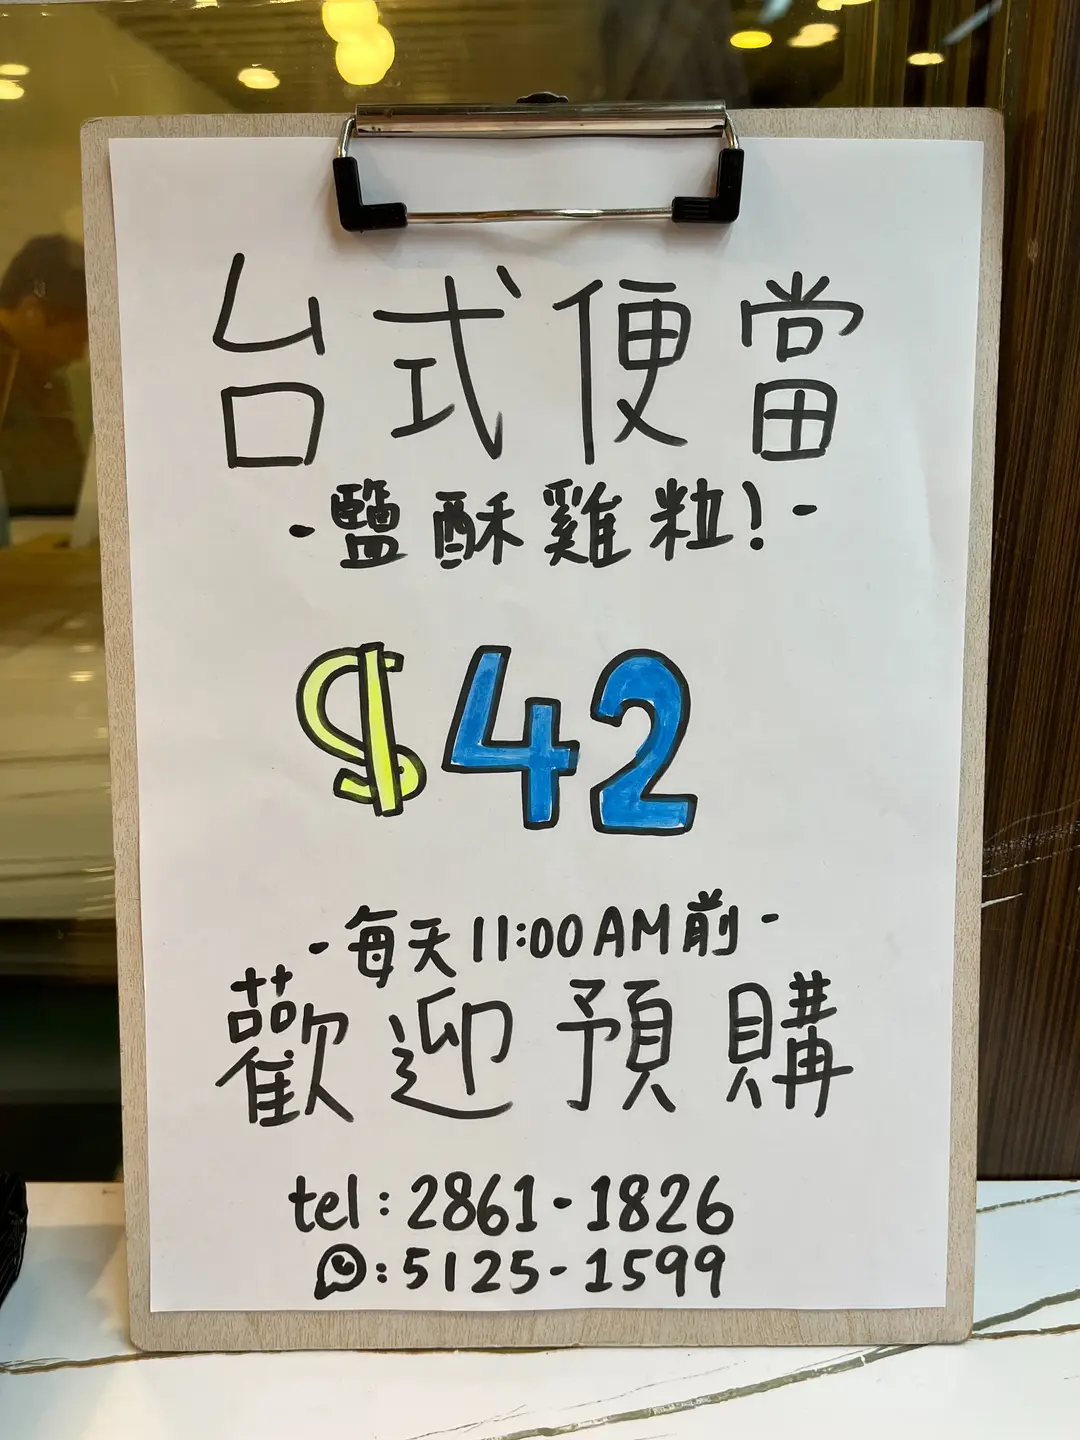 台式便當
-鹽酥雞粒!-
$42
-每天11:00AM前-
歡迎預購
tel:2861-1826
:5125-1599